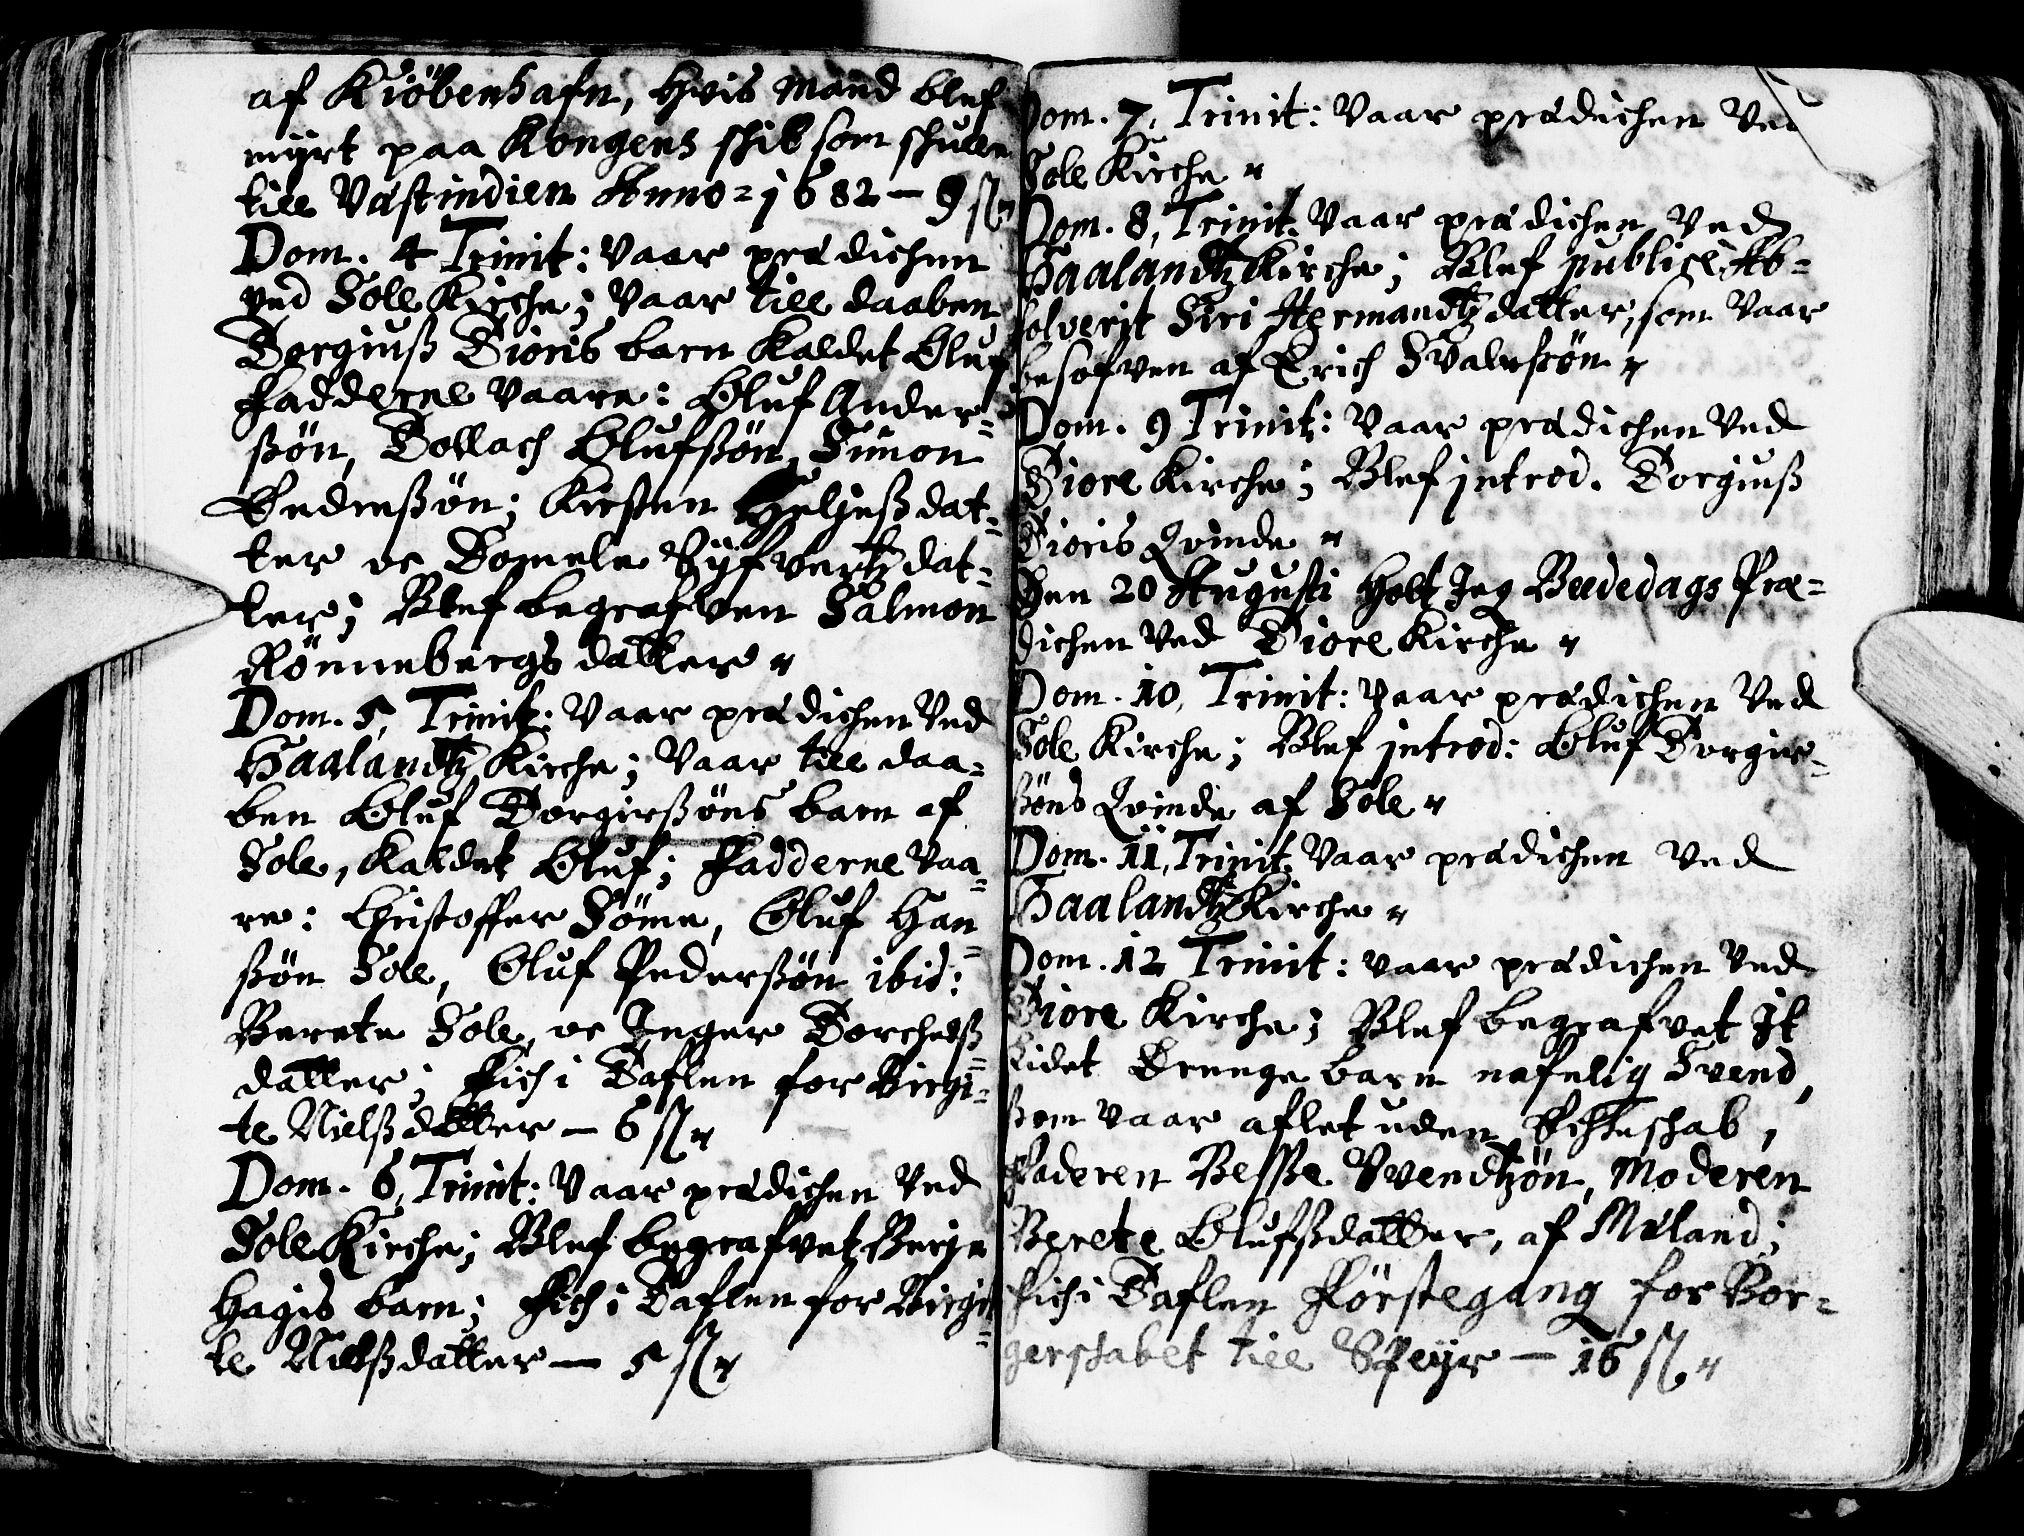 af Kiöbenhafn, Hvis Mand blef
myrt paa Kongens skib som skulle
till Væstindien Anno = 1682 — 9 ſſ
Dom. 4 Trinit: Vaar prædichen
ved Sole Kirche; Vaar till daaben
Torgiuß Tioris barn kaldet Oluf
Fadderne Vaare: Oluf Ander=
ßön, Tollach Olufßön, Simon
Pedersßön; Kirsten Heljeßdat=
ter oc Tomele Syfvertzdat=
ter; Blef begrafven Salmon
Rönnebergs datter
Dom. 5, Trinit: Vaar prædichen Ved
Haalandtz Kirche; Vaar till daa=
ben Oluf Torgirßöns barn af
Sole, kaldet Oluf; Fadderne Vaa=
re: Christoffer Söme, Oluf Han=
ßön Sole, Oluf Pederßön ibid:
Berete Sole, oc Inger Torchelß=
datter; Fich i Taflen for Birgi=
te Nielßdatter — 6 ſſ
Dom. 6, Trinit: Vaar prædichen Ved
Sole Kirche; Blef begrafvet Berje
Hagis barn; Fich i Taflen for Birgit=
te Nielßdatter — 5 ſſ
Dom. 7, Trinit: Vaar prædichen Ved
Sole Kirche
Dom. 8, Trinit: Vaar prædichen Ved
Haalandtz Kirche; Blef publicè Ab=
solverit Siri Hermandtzdatter, som Vaar
besofven af Erich
Dom. 9 Trinit: Vaar prædichen Ved
Tiore Kirche; Blef introd. Torgiuß
Tioris Qvinde
Den 20 Augusti Holt Jeg Beededags Præ=
dichen Ved Tiore Kirche
Dom. 10, Trinit: Vaar prædichen Ved
Sole Kirche; Blef introd: Oluf Torgir=
ßöns Qvinde af Sole
Dom. 11, Trinit: Vaar prædichen Ved
Haalandtz Kirche
Dom. 12 Trinit: Vaar prædichen Ved
Tiore Kirche; Blef begrafvet It
lidet Drenge barn nafnlig Svend,
som Vaar aflet uden Echteschab,
Faderen Besße Svendtzön, Moderen
Berete Olufsßdatter, af Mæland;
Fich i Taflen Förstegang for Bor=
gerschabet till Speyr — 16 ſſ